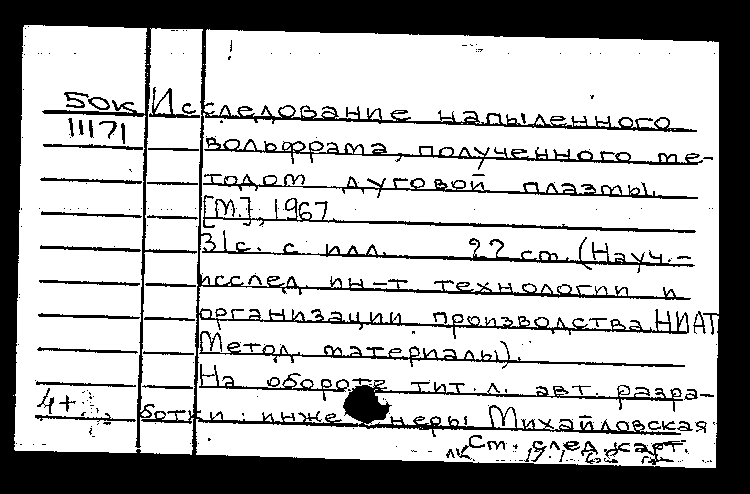 БОК Исследование напыленного
11171 вольфрама, полученного ме-
тодом дуговой плазмы.
[М.], 1967
31с. с илл. 22 cm. (Науч.-
исслед. ин-т технологии и
организации производства. НИАТ
Метод. материалы).
На обороте тит. л. авт. разра-
4+ ботки: инженеры Михайловская
См. след. карт.
ЛК